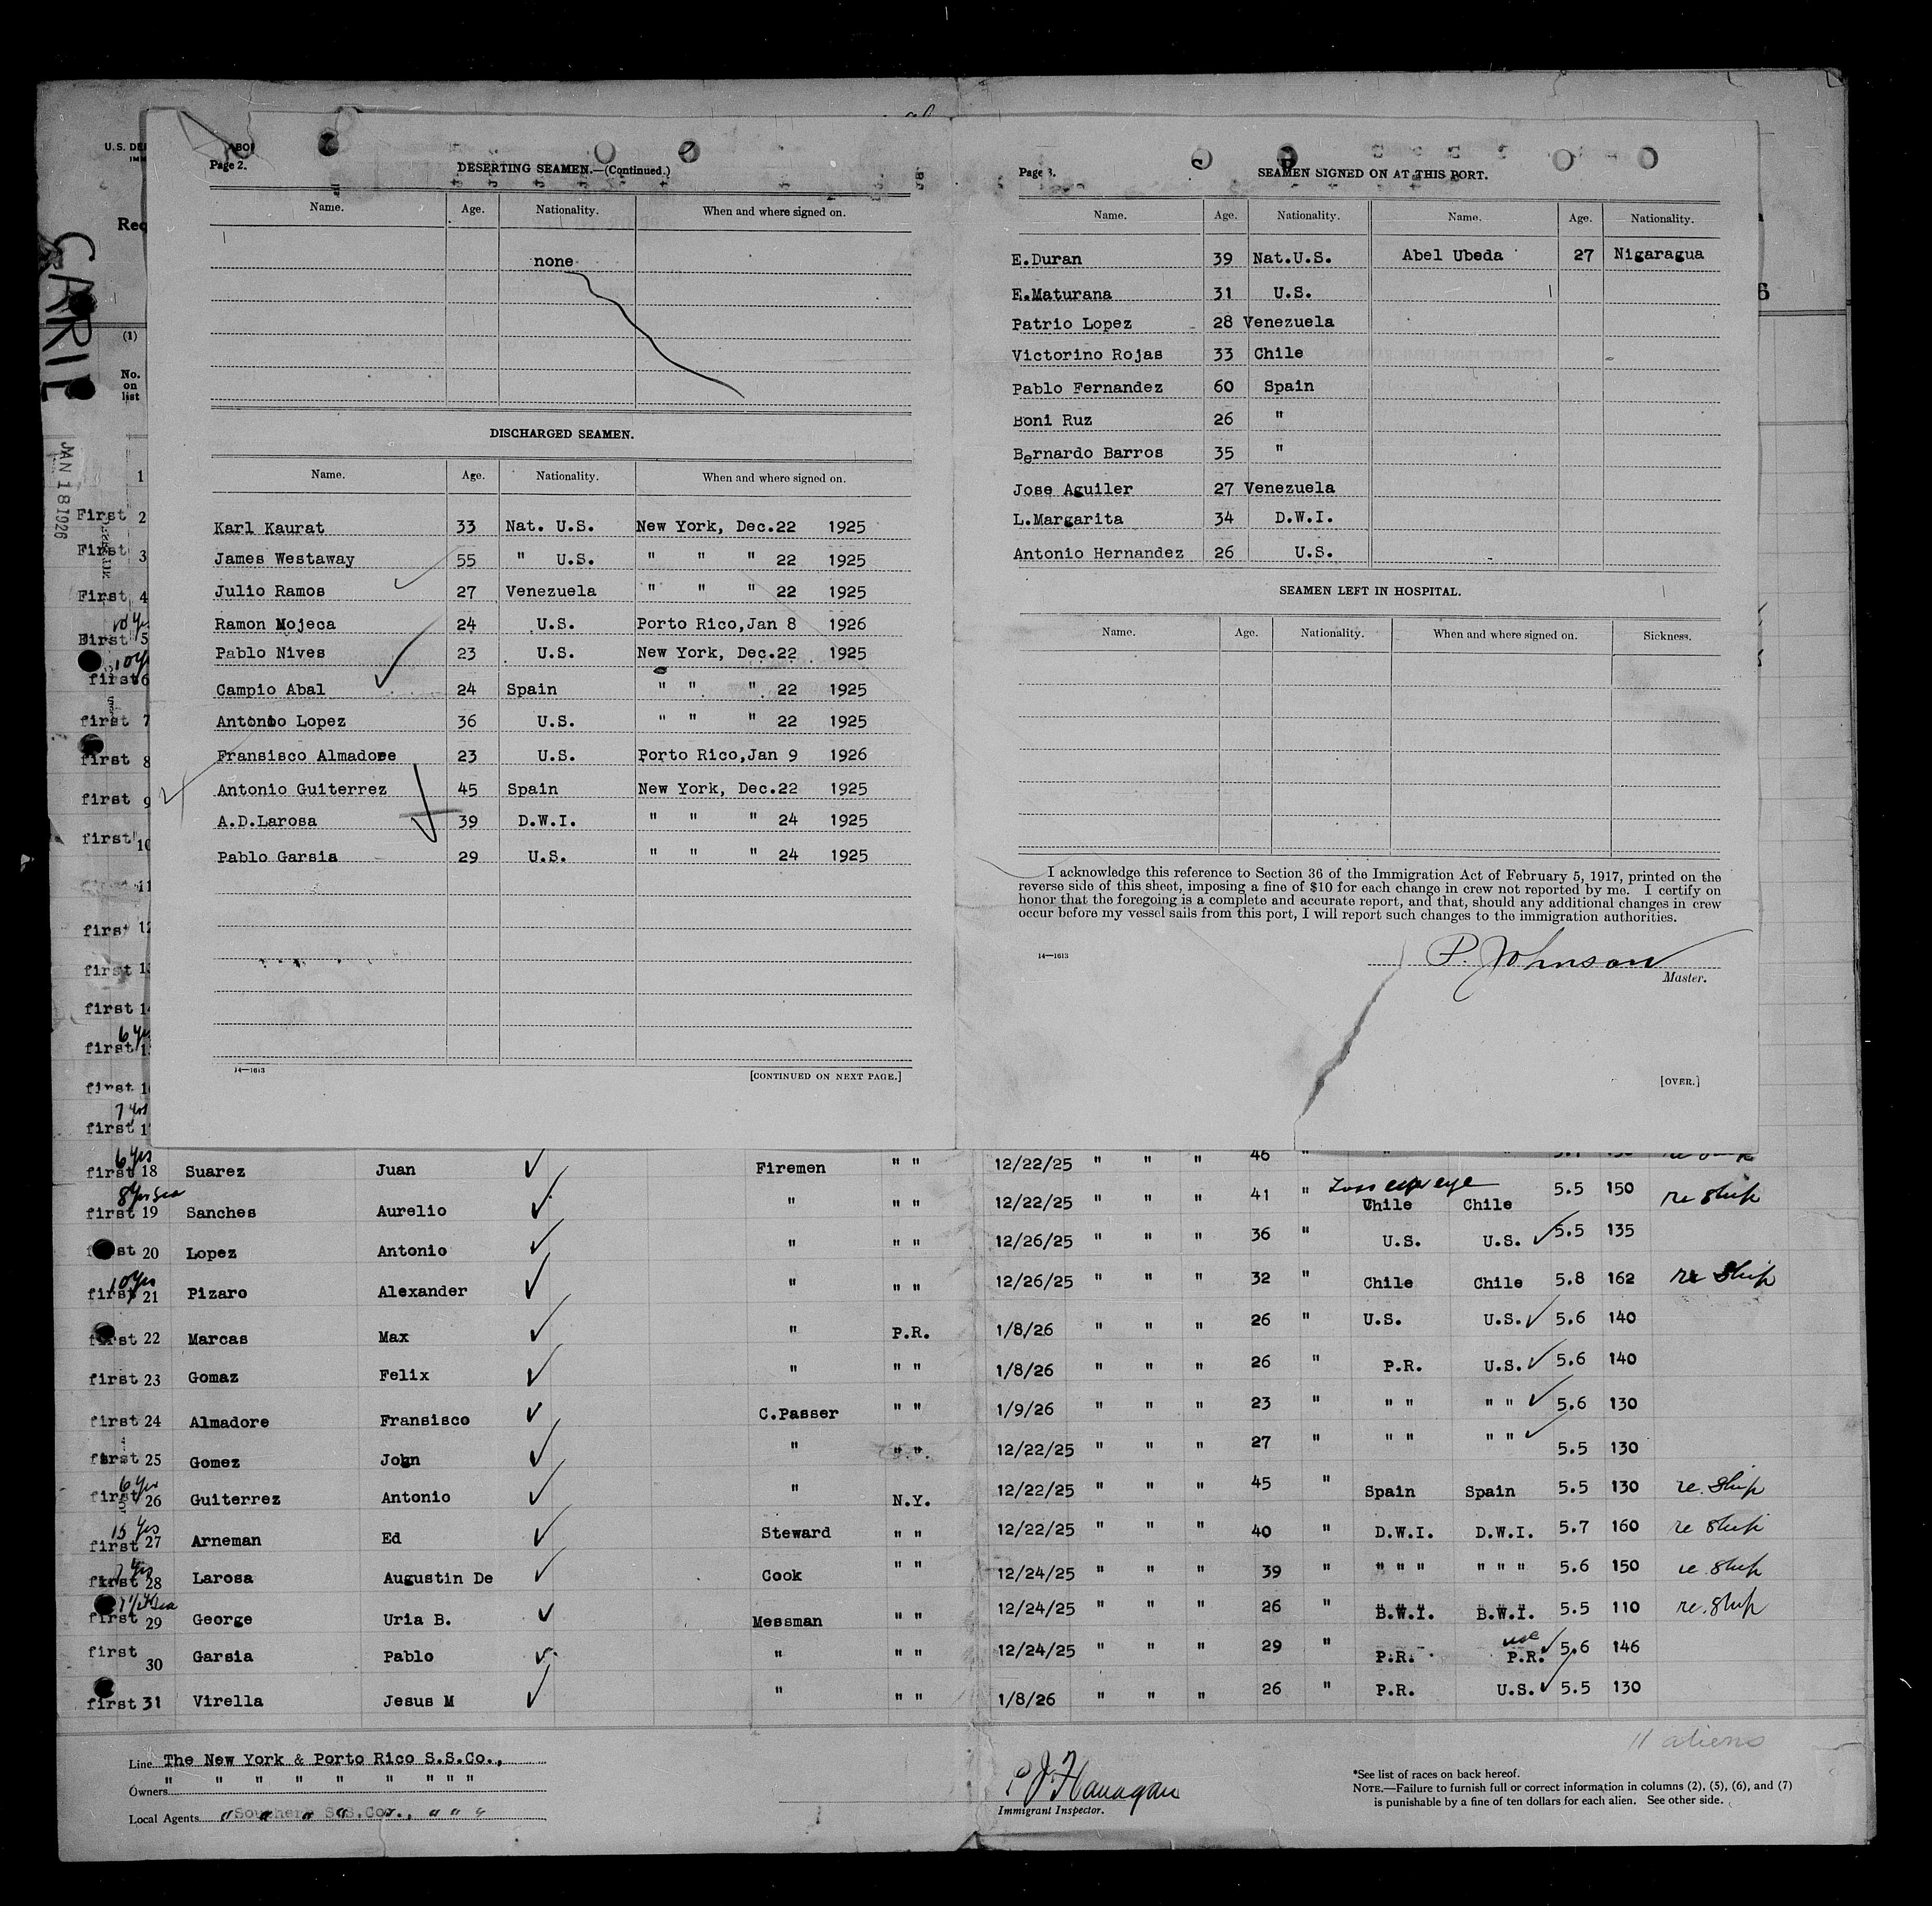 U.S. DE
ABO
IMM
Req
CARIL
(1)
No.
on
list
JAN 18 1926
1
First 2
First 3
First 4
First 5
first 6
first 7
first 8
first 9
first 10
11
first 12
first 13
first 14
6 yrs
first 1
first 1
7 yrs
first 1
Page 2.
DESERTING SEAMEN.—(Continued.)
Name. Age. Nationality. When and where signed on.
none
DISCHARGED SEAMEN.
Name. Age. Nationality. When and where signed on.
Karl Kaurat 33 Nat. U.S. New York, Dec.22 1925
James Westaway 55 " U.S. " " " 22 1925
Julio Ramos 27 Venezuela " " " 22 1925
Ramon Mojeca 24 U.S. Porto Rico,Jan 8 1926
Pablo Nives 23 U.S. New York, Dec.22 1925
Campio Abal 24 Spain " " " 22 1925
Antonio Lopez 36 U.S. " " " 22 1925
Fransisco Almadore 23 U.S. Porto Rico,Jan 9 1926
Antonio Guiterrez 45 Spain New York, Dec.22 1925
A.D.Larosa 39 D.W.I. " " " 24 1925
Pablo Garsia 29 U.S. " " " 24 1925
14—1613
[CONTINUED ON NEXT PAGE.]
Page 3.
SEAMEN SIGNED ON AT THIS PORT.
Name. Age. Nationality. Name. Age. Nationality.
E.Duran 39 Nat.U.S. Abel Ubeda 27 Nigaragua
E.Maturana 31 U.S.
Patrio Lopez 28 Venezuela
Victorino Rojas 33 Chile
Pablo Fernandez 60 Spain
Boni Ruz 26 "
Bernardo Barros 35 "
Jose Aguiler 27 Venezuela
L.Margarita 34 D.W.I.
Antonio Hernandez 26 U.S.
SEAMEN LEFT IN HOSPITAL.
Name. Age. Nationality. When and where signed on. Sickness.
I acknowledge this reference to Section 36 of the Immigration Act of February 5, 1917, printed on the
reverse side of this sheet, imposing a fine of $10 for each change in crew not reported by me. I certify on
honor that the foregoing is a complete and accurate report, and that, should any additional changes in crew
occur before my vessel sails from this port, I will report such changes to the immigration authorities.
14—1613
P. Johnson
Master.
[OVER.]
6 yrs
first 18 Suarez Juan Firemen " " 12/22/25 " " " 46 "
8 yrs sea
first 19 Sanches Aurelio " " " 12/22/25 " " " 41 " Chile Chile 5.5 150 re ship
first 20 Lopez Antonio " " " 12/26/25 " " " 36 " U.S. U.S. 5.5 135
10 yrs
first 21 Pizaro Alexander " " " 12/26/25 " " " 32 " Chile Chile 5.8 162 re ship
first 22 Marcas Max " P.R. 1/8/26 " " " 26 " U.S. U.S. 5.6 140
first 23 Gomaz Felix " " " 1/8/26 " " " 26 " P.R. U.S. 5.6 140
first 24 Almadore Fransisco C.Passer " " 1/9/26 " " " 23 " " " " " 5.6 130
first 25 Gomez John " " " 12/22/25 " " " 27 " " " " " 5.5 130
6 yrs
first 26 Guiterrez Antonio " N.Y. 12/22/25 " " " 45 " Spain Spain 5.5 130 re. ship
15 yrs
first 27 Arneman Ed Steward " " 12/22/25 " " " 40 " D.W.I. D.W.I. 5.7 160 re ship
first 28 Larosa Augustin De Cook " " 12/24/25 " " " 39 " " " " " " " 5.6 150 re. ship
first 29 George Uria B. Messman " " 12/24/25 " " " 26 " B.W.I. B.W.I. 5.5 110 re. ship
first 30 Garsia Pablo " " " 12/24/25 " " " 29 " P.R. P.R. 5.6 146
first 31 Virella Jesus M " " " 1/8/26 " " " 26 " P.R. U.S. 5.5 130
11 aliens
Line The New York & Porto Rico S.S.Co.,
Owners " " " " " " " " "
Local Agents
P J Flanagan
Immigrant Inspector.
*See list of races on back hereof.
NOTE.—Failure to furnish full or correct information in columns (2), (5), (6), and (7)
is punishable by a fine of ten dollars for each alien. See other side.